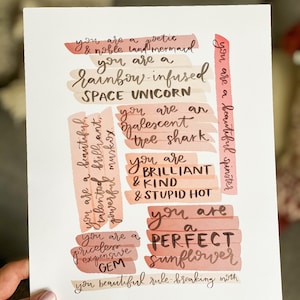 you are a poetic
& noble land mermaid
you are a
rainbow-infused
SPACE UNICORN
you are a beautiful spinster
you are a beautiful,
talented, brilliant,
powerful muskox
you are an
opalescent
tree shark
you are
BRILLIANT
& KIND
& STUPID HOT
you are a
priceless
expensive
GEM
you are
a
PERFECT
sunflower
you beautiful rule-breaking moth